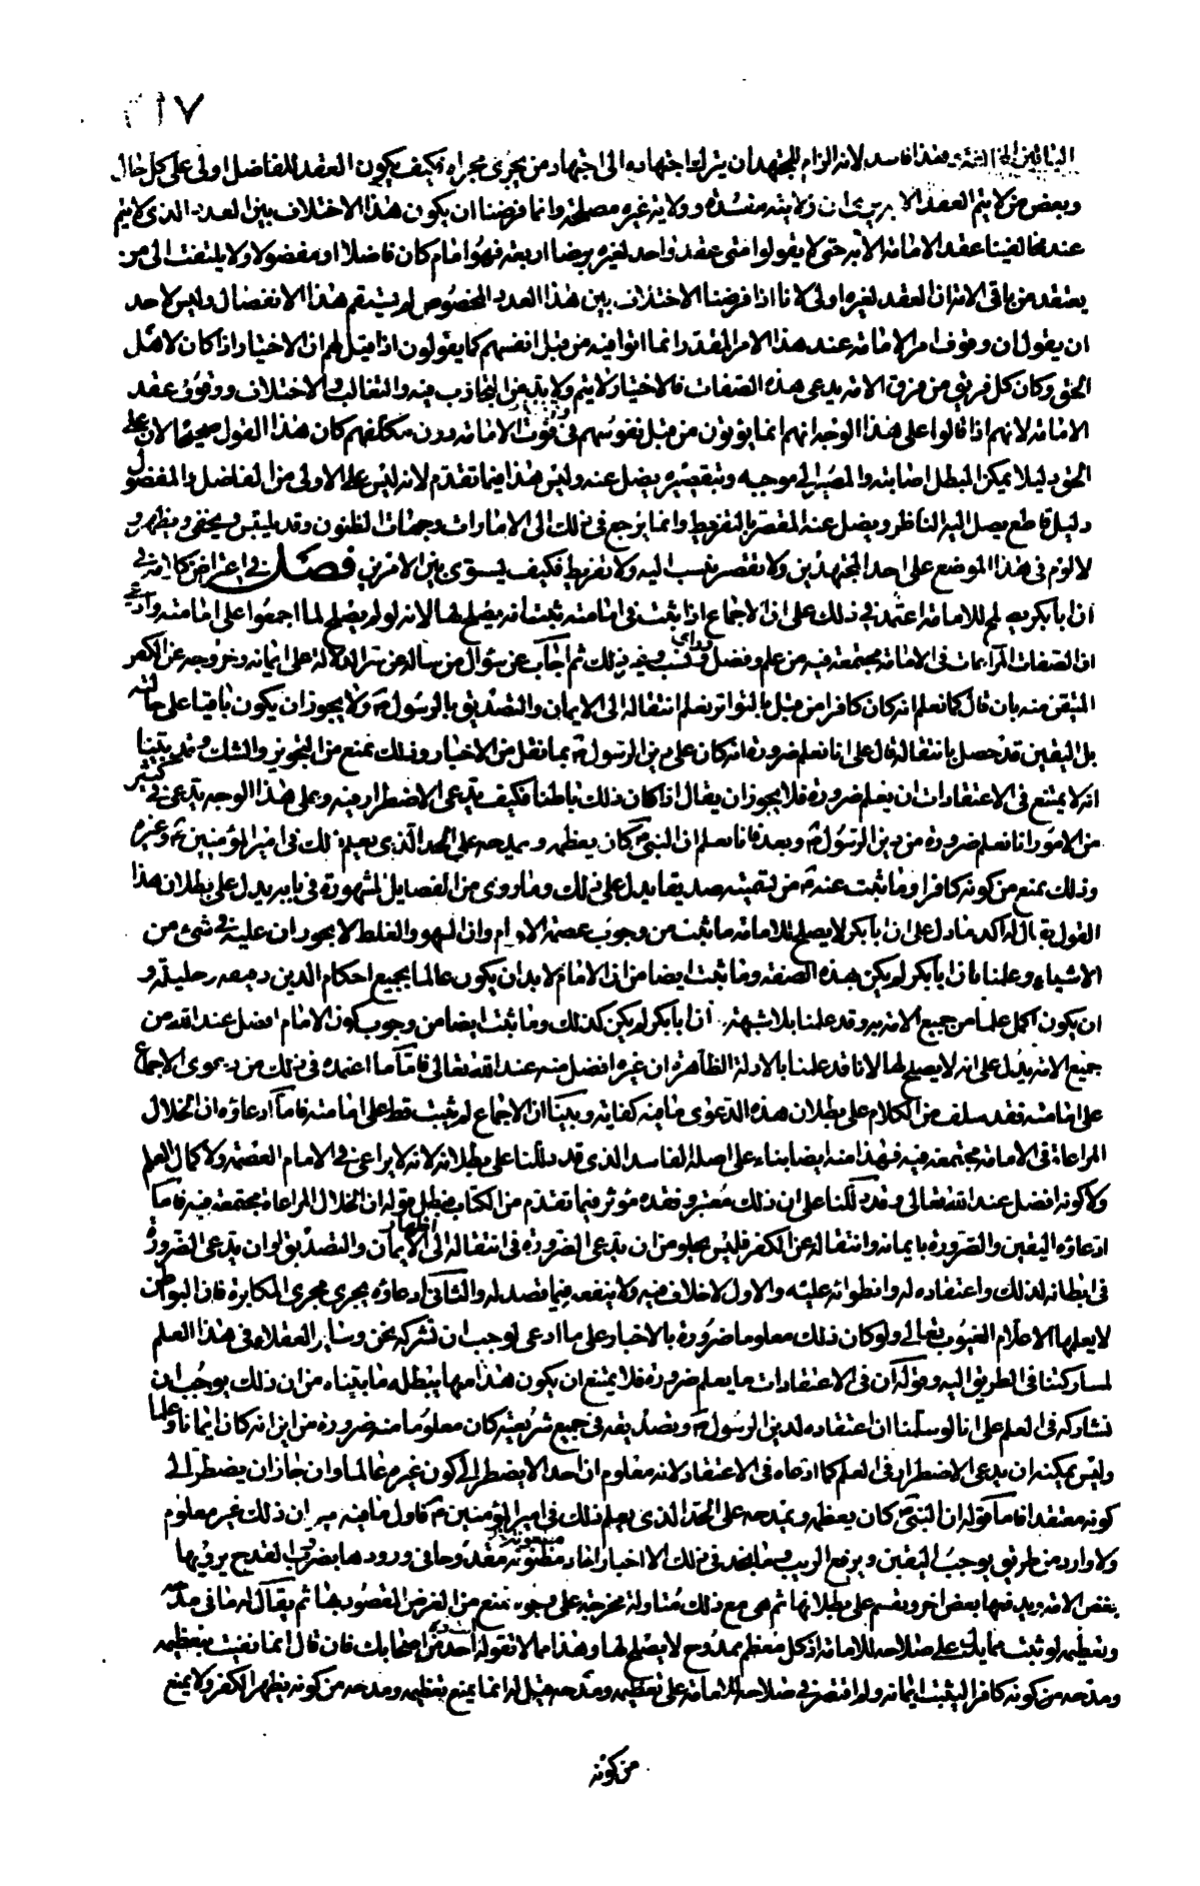 ١٧
فهذا فاسد لانه الزام للمجتهد ان يترك اجتهاده الى اجتهاد من يجرى مجراه فكيف يكون العقد للفاضل اولى على كل حال
وبعض من لا يتم العقد الا به يرى ان ولايته مفسدة وولاية غيره مصلحة وانما فرضنا ان يكون هذا الاختلاف بين العدد الذى لا يتم
عند مخالفينا عقد الامامة الا به حتى لا يقولوا متى عقد واحد لغيره برضا اربعة فهو امام كان فاضلا او مفضولا ولا يلتفت الى من
يعتقد من باقى الامة ان العقد لغيره اولى لانا اذا فرضنا الاختلاف بين هذا العدد المخصوص لم يستقم هذا الانفصال وليس لاحد
ان يقول ان وقوف امر الامامة عند هذا الامر المقدر انما اتوا فيه من قبل انفسهم كما يقولون اذا قيل لهم ان الاختيار اذا كان لاهل
الحق وكان كل فريق من فرق الامة يدعى هذه الصفات فالاختيار لا يتم ولا بد من التجاذب فيه والتغالب والاختلاف ووقوف عقد
الامامة لانهم اذا قالوا على هذا الوجه انهم انما يؤتون من قبل نفوسهم فى فوت الامامة دون مكلفهم كان هذا القول صحيحا لان على
الحق دليلا يمكن المبطل اصابته والمصير الى موجبه وبتقصيره يضل عنه وليس هذا فيما تقدم لانه ليس على الاولى من الفاضل والمفضول
دليل قاطع يصل اليه الناظر ويضل عنه المقصر بالتفريط وانما يرجع فى ذلك الى الامارات وجهات الظنون وقد يلتبس ويخفى ويظهر و
لا لوم فى هذا الموضع على احد المجتهدين ولا تقصير ينسب اليه ولا تفريط فكيف يسوى بين الامرين فصل فى اعتراض كلامه فى
ان ابا بكر يصلح للامامة اعتمد فى ذلك على ان الاجماع اذا ثبت فى امامته ثبت انه يصلح لها لانه لو لم يصلح لها لما اجمعوا على امامته وادعى
ان الصفات المراعات فى الامامة مجتمعة فيه من علم وفضل وراى ونسب وغير ذلك ثم اجاب عن سؤال من ساله عن الدلالة على ايمانه وخروجه عن الكفر
المتيقن منه بان قال كما نعلم انه كان كافرا من قبل بالتواتر نعلم انتقاله الى الايمان والتصديق بالرسول ولا يجوز ان يكون باقيا على حالته
بل اليقين قد حصل بانتقاله قال على انا نعلم ضرورة انه كان على دين الرسول بما نقل من الاخبار وذلك يمنع من التجويز والشك وقد بينا
انه لا يمتنع فى الاعتقادات ان يعلم ضرورة فلا يجوز ان يقال اذا كان ذلك باطنا فكيف يدعى الاضطرار فيه وعلى هذا الوجه يدعى فى كثير
من الامور انا نعلم ضرورة من دين الرسول وبعد فانا نعلم ان النبى كان يعظمه ويمدحه على الحد الذى يعلم ذلك فى امير المؤمنين وغيره
وذلك يمنع من كونه كافرا وما ثبت عنه من تسميته صديقا يدل على ذلك وما روى من الفضايل المشهورة فى بابه يدل على بطلان هذا
القول يقال له اكد ما دل على ان ابا بكر لا يصلح للامامة ما ثبت من وجوب عصمة الامام وان السهو والغلط لا يجوزان عليه فى شئ من
الاشياء وعلمنا بان ابا بكر لم يكن بهذه الصفة وما ثبت ايضا من ان الامام لا بد ان يكون عالما بجميع احكام الدين دقيقه وجليله و
ان يكون اكمل علما من جميع الامة به وقد علمنا بلا شبهة ان ابا بكر لم يكن كذلك وما ثبت ايضا من وجوب كون الامام افضل عند الله من
جميع الامة يدل على انه لا يصلح لها لانا قد علمنا بالادلة الظاهرة ان غيره افضل منه عند الله تعالى فاما ما اعتمده فى ذلك من دعوى الاجماع
على امامته فقد سلف من الكلام على بطلان هذه الدعوى ما فيه كفاية وبينا ان الاجماع لم يثبت قط على امامته فاما ادعاؤه ان الخلال
المراعاة فى الامامة مجتمعة فيه فهذا منه ايضا بناء على اصله الفاسد الذى قد دللنا على بطلانه لانه لا يراعى فى الامام العصمة ولا كمال العلم
ولا كونه افضل عند الله تعالى وقد دللنا على ان ذلك معتبر وفقده مؤثر فيما تقدم من الكتاب فبطل قوله ان الخلال المراعاة مجتمعة فيه فاما
ادعاؤه اليقين والضرورة بايمانه وانتقاله عن الكفر فليس يخلو من ان يدعى الضرورة فى انتقاله الى اظهار الايمان والتصديق او ان يدعى الضرورة
فى ابطانه لذلك واعتقاده له وانطوائه عليه والاول لا خلاف فيه ولا ينفعه فيما قصد له والثانى ادعاؤه يجرى مجرى المكابرة فان البواطن
لا يعلمها الا علام الغيوب تعالى ولو كان ذلك معلوما ضرورة بالاخبار على ما ادعى لوجب ان نشركه نحن وساير العقلاء فى هذا العلم
لمشاركتنا فى الطريق اليه وقوله ان فى الاعتقادات ما يعلم ضرورة فلا يمتنع ان يكون هذا منها يبطله ما بيناه من ان ذلك يوجب ان
نشاركه فى العلم على انا لو سلمنا ان اعتقاده لدين الرسول وتصديقه فى جميع شريعته كان معلوما منه ضرورة من اين انه كان ايمانا وعلما
وليس يمكنه ان يدعى الاضطرار فى العلم كما ادعاه فى الاعتقاد لانه معلوم ان احدا لا يضطر الى كون غيره عالما وان جاز ان يضطر الى
كونه معتقدا فاما قوله ان النبى كان يعظمه ويمدحه على الحد الذى يعلم ذلك فى امير المؤمنين فاول ما فيه ان ذلك غير معلوم
ولا وارد من طريق يوجب اليقين ويرفع الريب وما نجد فى ذلك الا اخبار احاد مظنونة مقدوحا فى ورودها بضروب القدح يرويها
بعض الامة ويدفعها بعض اخر ويقسم على بطلانها ثم هى مع ذلك متاولة مخرجة على وجوه تمنع من الغرض المقصود بها ثم يقال له ما فى مدحه
وتعظيمه لو ثبت مما يدل على صلاحه للامامة اذ كل معظم ممدوح لا يصلح لها وهذا مما لا تقوله انت ولا احد من اصحابك فان قال انما نفيت بتعظيمه
ومدحه من كونه كافرا ليثبت ايمانه ولم اقتصر فى صلاحه للامامة على تعظيمه ومدحه قيل له انما يمنع تعظيمه ومدحه من كونه يظهر الكفر ولا يمنع
من كونه